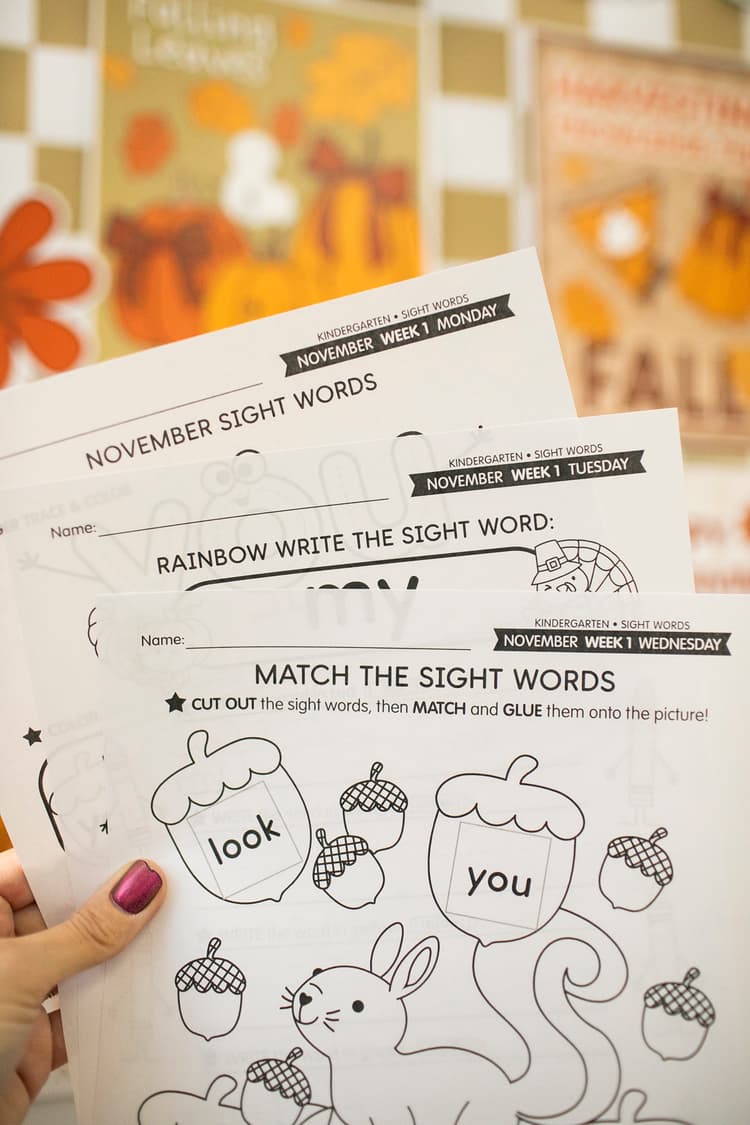 Falling
Leaves
&
FALL
KINDERGARTEN • SIGHT WORDS
NOVEMBER WEEK 1 MONDAY
NOVEMBER SIGHT WORDS
KINDERGARTEN • SIGHT WORDS
NOVEMBER WEEK 1 TUESDAY
Name:
RAINBOW WRITE THE SIGHT WORD:
my
KINDERGARTEN • SIGHT WORDS
NOVEMBER WEEK 1 WEDNESDAY
Name:
MATCH THE SIGHT WORDS
CUT OUT the sight words, then MATCH and GLUE them onto the picture!
look
you